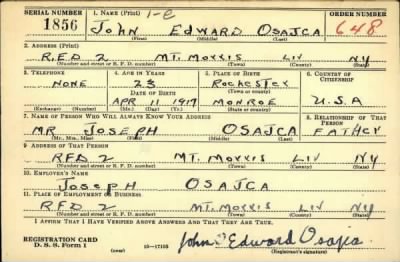 SERIAL NUMBER 1. NAME (Print) 1-C ORDER NUMBER
1856 JOHN EDWARD OSAJCA 648
(First) (Middle) (Last)
2. ADDRESS (Print)
R.F.D 2 MT. MORRIS LIV NY
(Number and street or R. F. D. number) (Town) (County) (State)
3. TELEPHONE 4. AGE IN YEARS 5. PLACE OF BIRTH 6. COUNTRY OF CITIZENSHIP
NONE 23 ROCHESTER
DATE OF BIRTH (Town or county)
APR 11 1917 MONROE U.S.A
(Exchange) (Number) (Mo.) (Day) (Yr.) (State or country)
7. NAME OF PERSON WHO WILL ALWAYS KNOW YOUR ADDRESS 8. RELATIONSHIP OF THAT PERSON
MR JOSEPH OSAJCA FATHER
(Mr., Mrs., Miss) (First) (Middle) (Last)
9. ADDRESS OF THAT PERSON
RFD 2 MT. MORRIS LIV NY
(Number and street or R. F. D. number) (Town) (County) (State)
10. EMPLOYER'S NAME
JOSEPH OSAJCA
11. PLACE OF EMPLOYMENT OR BUSINESS
R.F.D. 2 MT. MORRIS LIV NY
(Number and street or R. F. D. number) (Town) (County) (State)
I AFFIRM THAT I HAVE VERIFIED ABOVE ANSWERS AND THAT THEY ARE TRUE.
REGISTRATION CARD
D. S. S. Form 1 (over) 16—17105 John Edward Osajca
(Registrant's signature)